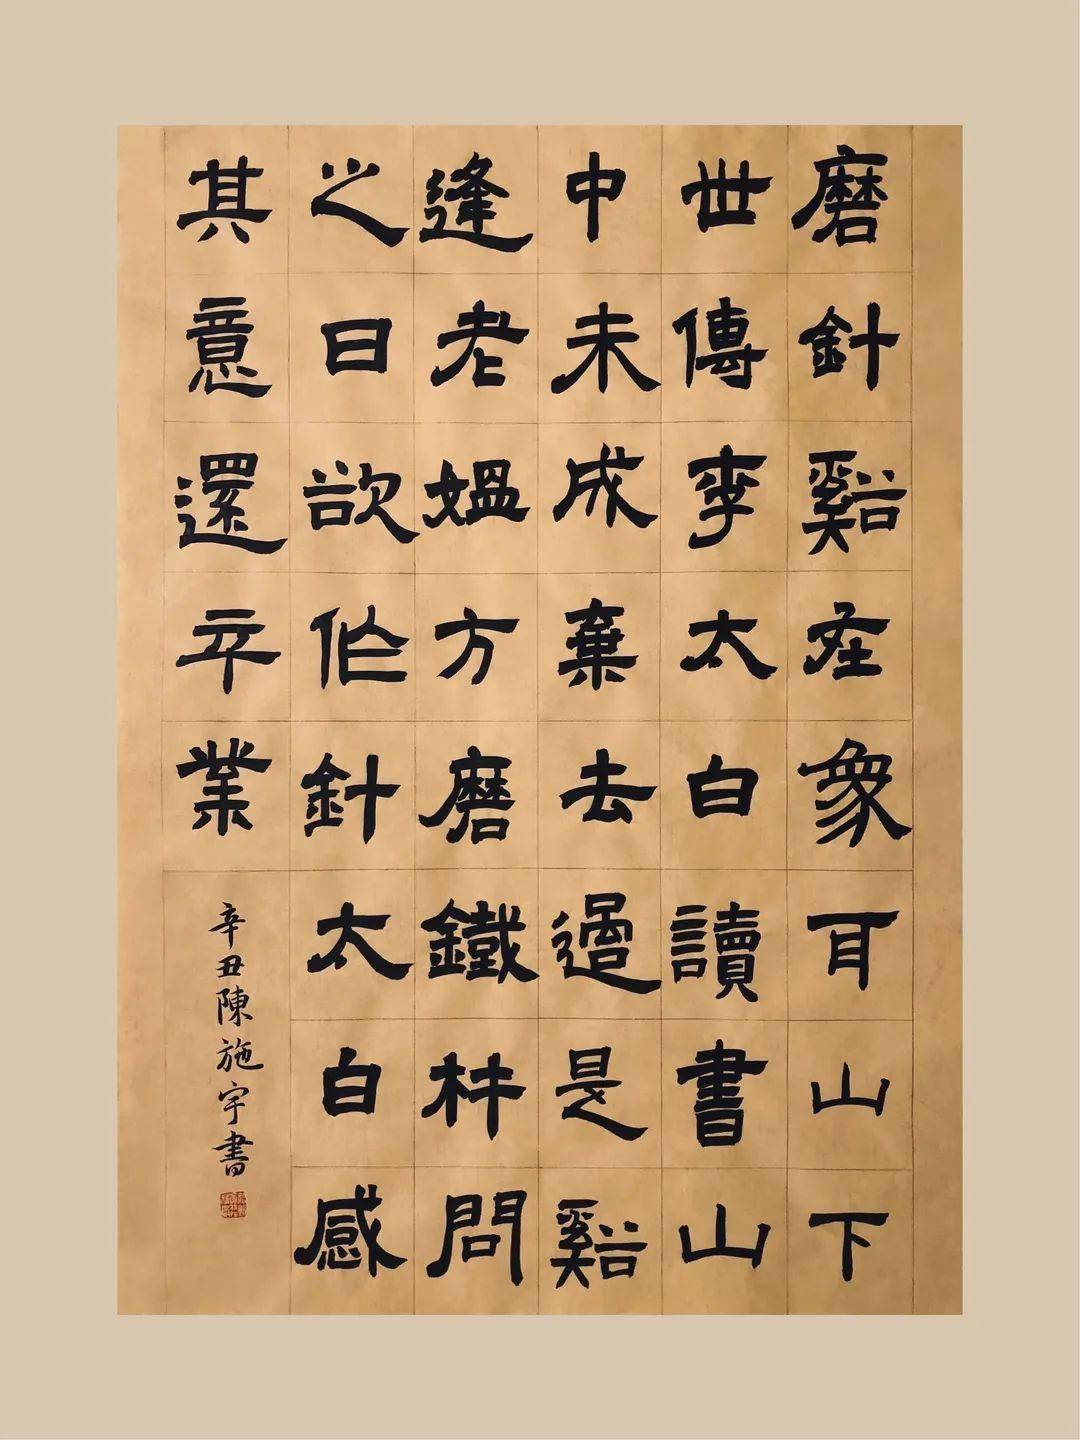 磨針谿在象耳山下
世傳李太白讀書山
中未成棄去過是谿
逢老媼方磨鐵杵問
之曰欲作針太白感
其意還卒業
辛丑陳施宇書